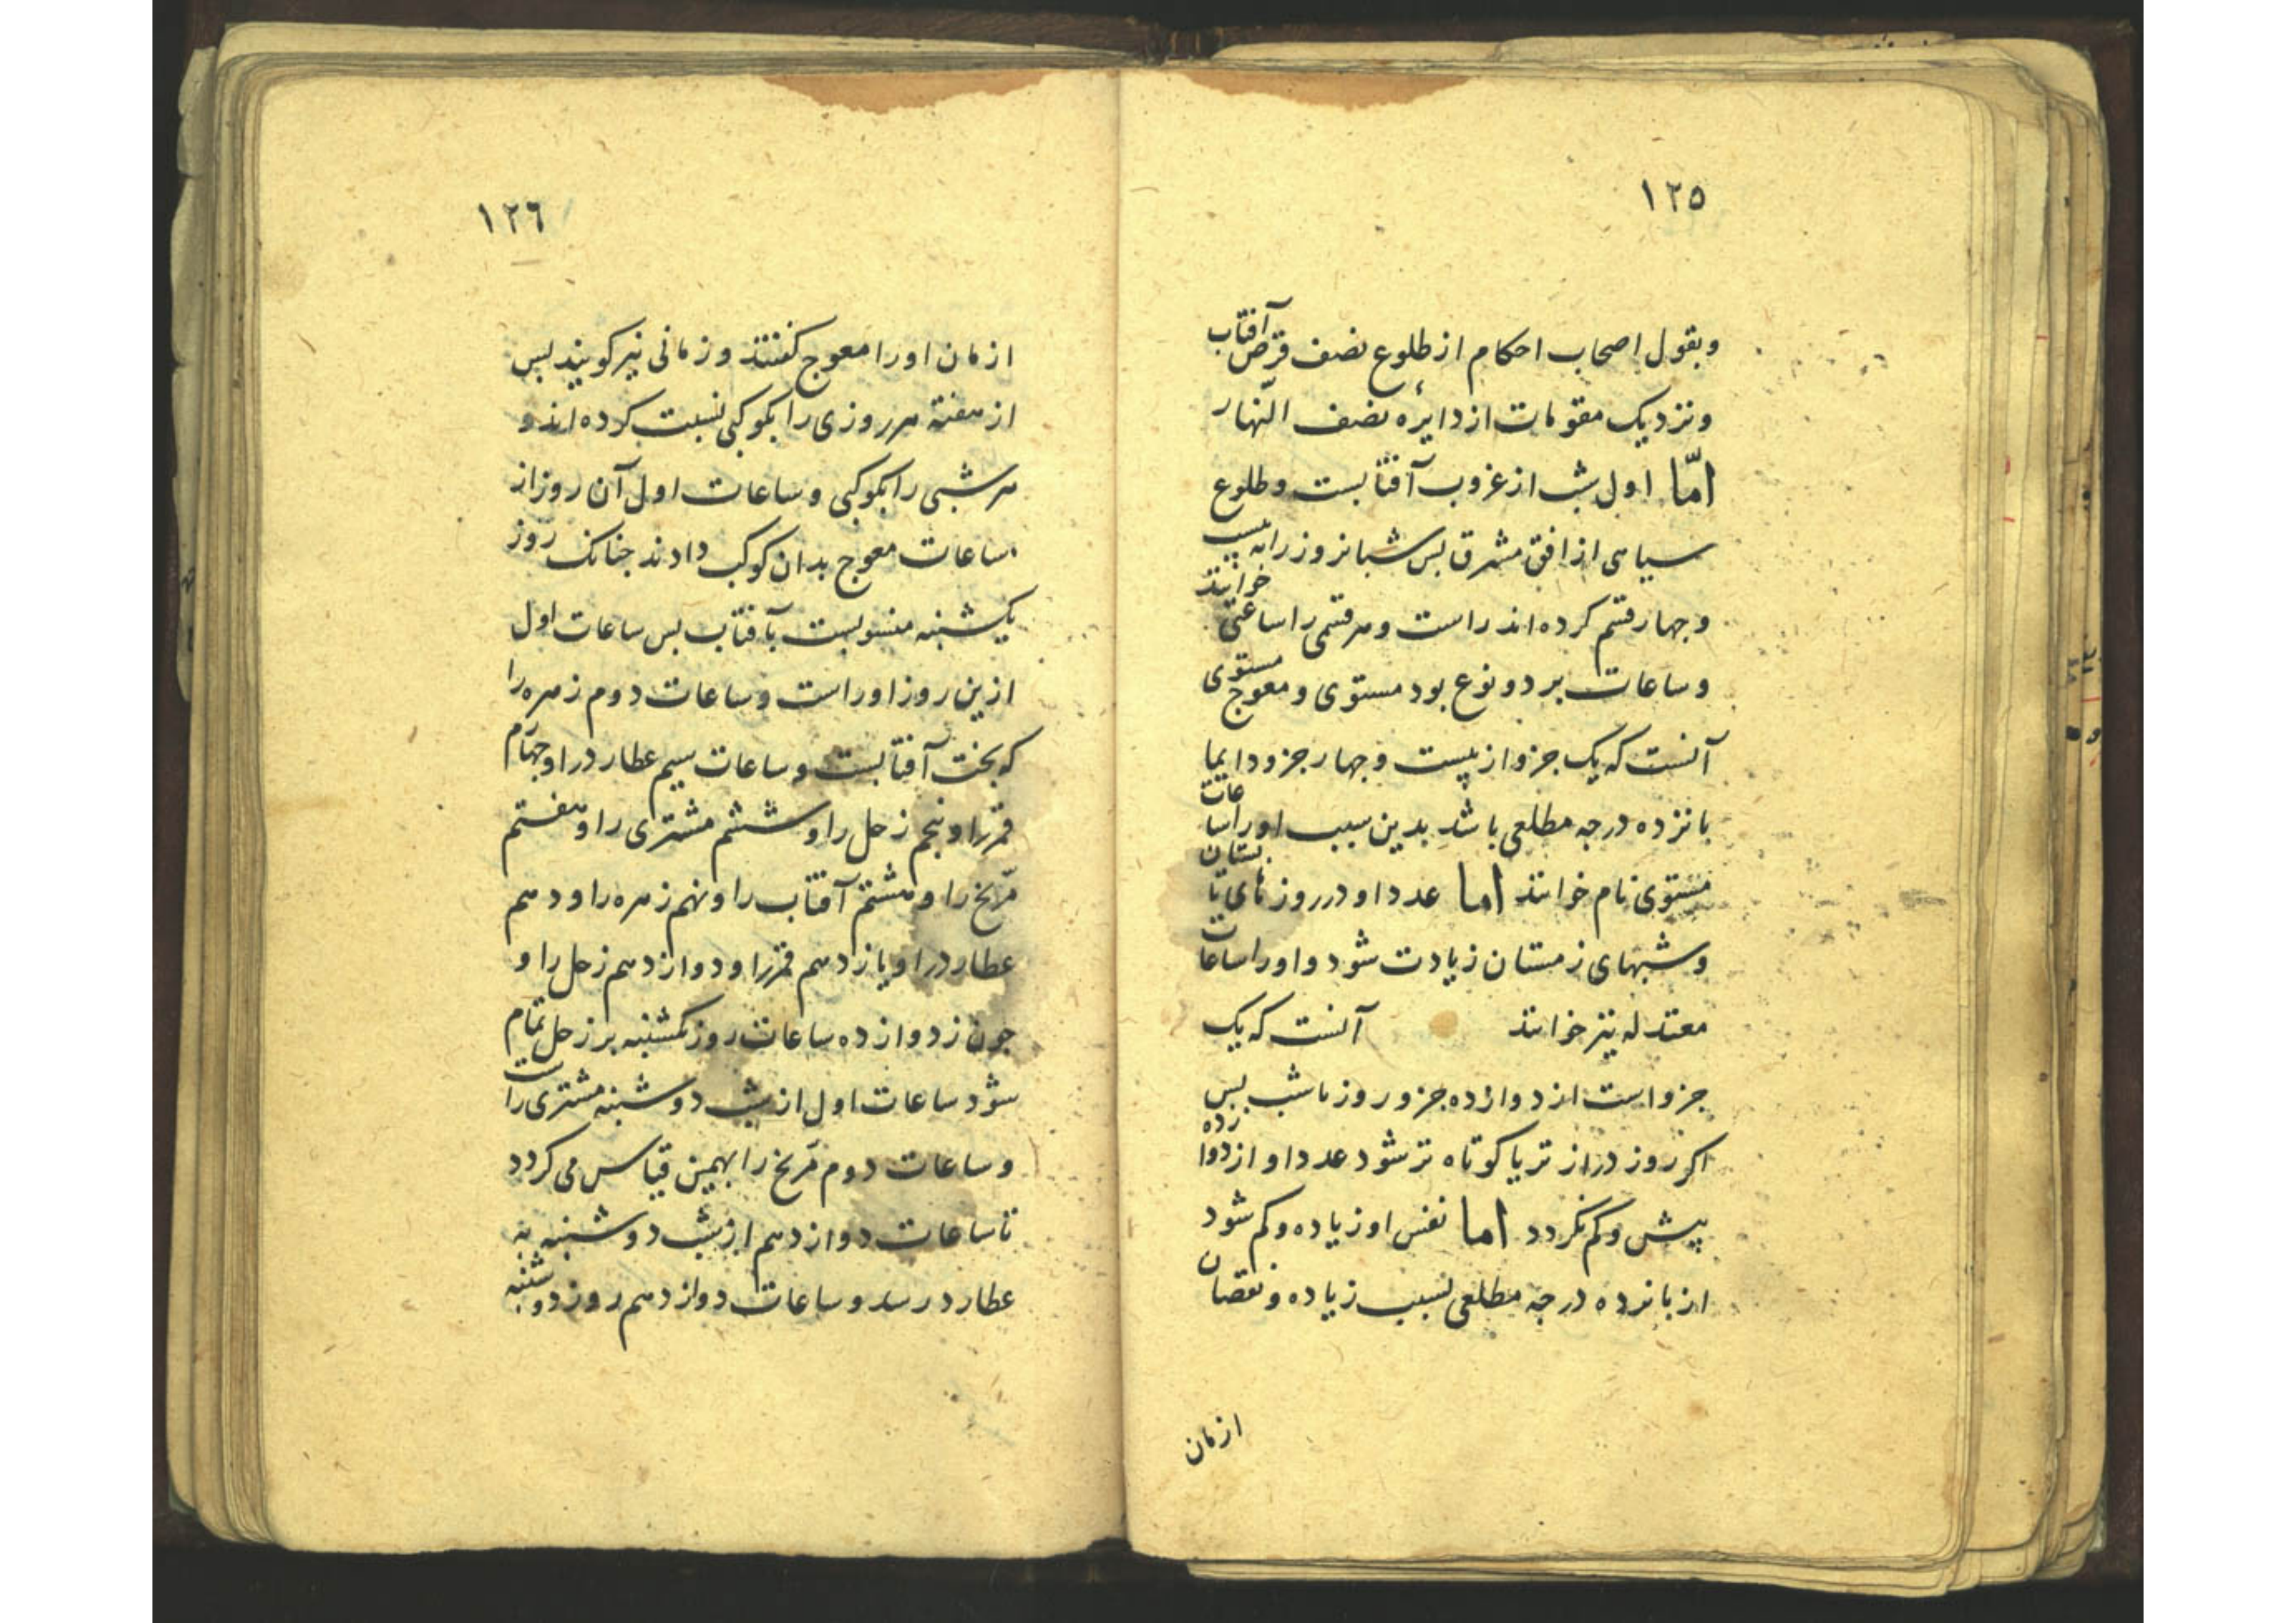 ١٢٥
وبقول اصحاب احکام از طلوع نصف قرص آفتاب
ونزدیک مقومات از دایرهٔ نصف النّهار
امّا اول شب از غروب آفتابست وطلوع
سیاهی از افق مشرق بس شبانروز را به بیست
وجهار قسم کرده اند راست وهر قسمی را ساعتی خوانند
وساعات بر دو نوع بود مستوی ومعوج مستوی
آنست که یک جزو از بیست وجهار جزو دایما
بانزده درجه مطلعی باشد بدین سبب اورا ساعات
مستوی نام خوانند اما عدد او در روزهای تابستان
وشبهای زمستان زیادت شود واورا ساعات
معتدله نیز خوانند آنست که یک
جزو است از دوازده جزو روز یا شب بس
اکر روز درازتر یا کوتاه تر شود عدد او از دوازده
بیش وکم نکردد اما نفس او زیاده وکم شود
از بانزده درجه مطلعی بسبب زیاده ونقصان
ازمان
١٢٦
ازمان اورا معوج کفتند وزمانی نیز کویند بس
از هفته هر روزی را بکوکبی نسبت کرده اند و
هر شبی را بکوکبی وساعات اول آن روز از
ساعات معوج بدان کوکب دادند جنانک روز
یکشنبه منسوبست بآفتاب بس ساعات اول
ازین روز اوراست وساعات دوم زهره را
که بخت آفتابست وساعات سیم عطارد را وجهارم
قمر را وبنجم زحل را وششم مشتری را وهفتم
مرّیخ را وهشتم آفتاب را ونهم زهره را ودهم
عطارد را ویازدهم قمر را ودوازدهم زحل را و
جون ز دوازده ساعات روز یکشنبه بر زحل تمام
شود ساعات اول از شب دوشنبه مشتری راست
وساعات دوم مرّیخ را بهمین قیاس می کردد
تا ساعات دوازدهم از شب دوشنبه به
عطارد رسد وساعات دوازدهم روز دوشنبه